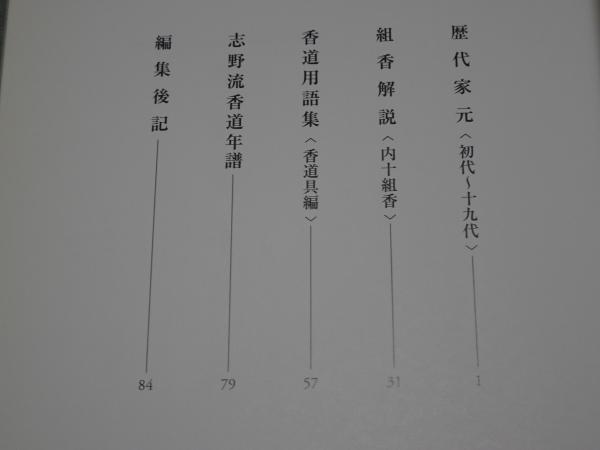 歴代家元〈初代〜十九代〉 1
組香解説〈内十組香〉 31
香道用語集〈香道具編〉 57
志野流香道年譜 79
編集後記 84